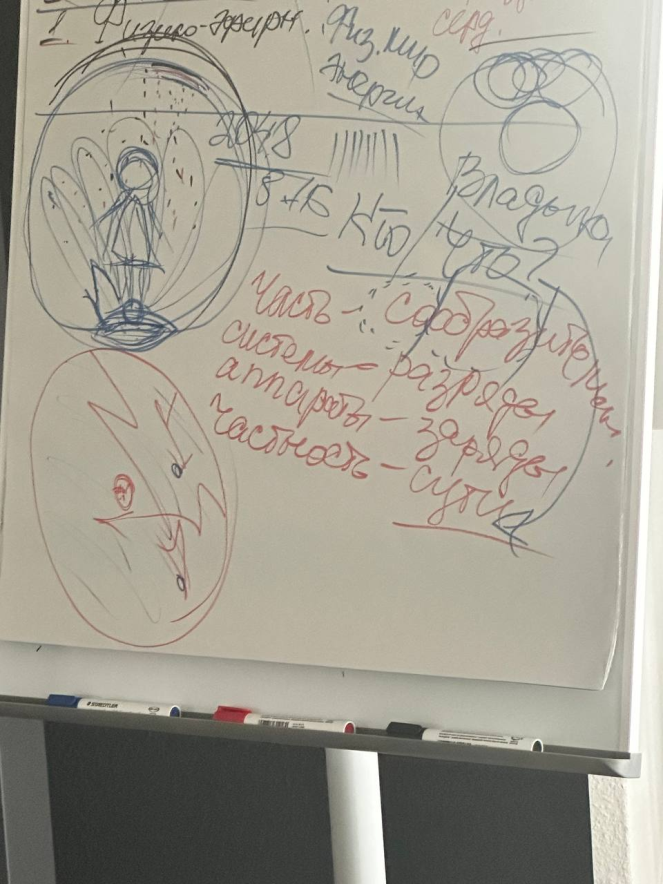 серд.
1. Физико-эфирн. Физ. мир
энергия
2048
8 16
Кто
Владыка
что?
Часть - сообразительн.
системы - разряды
аппараты - заряды
частность - сути
STAEDTLER